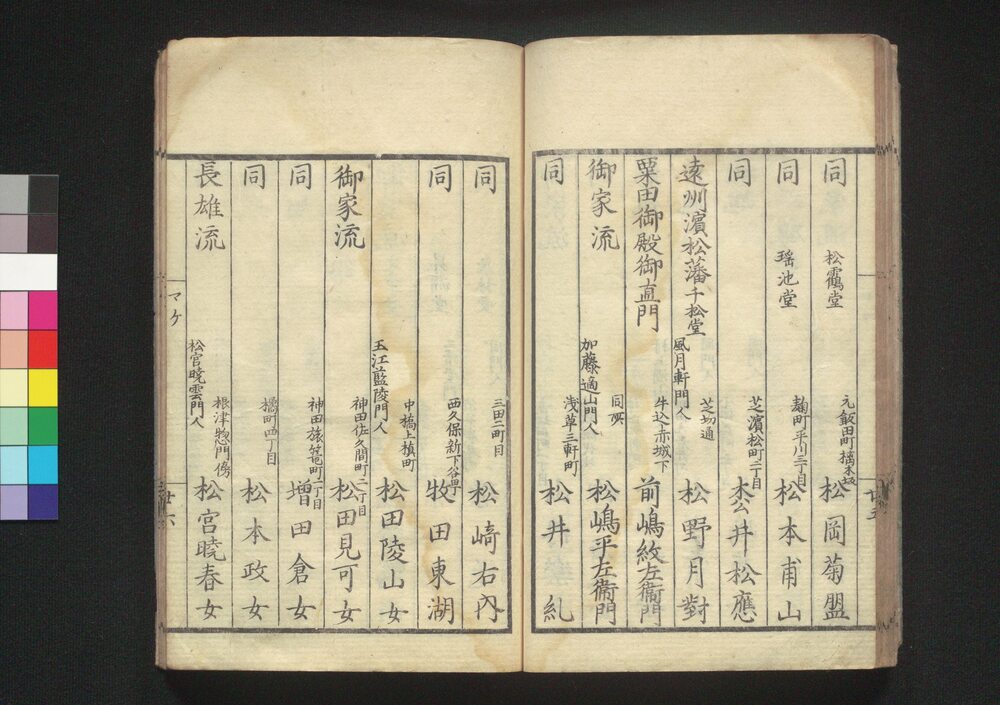 同 松靏堂 元飯田町 松岡菊盟
同 瑶池堂 麹町平川三丁目 松本甫山
同 芝濱松町二丁目 枩井松應
遠州濱松藩千松堂 風月軒門人 芝切通 松野月對
粟田御殿御直門 牛込赤城下 前嶋紋左衞門
御家流 加藤適山門人 同所 松嶋平左衞門
同 浅草三軒町 松井糺
廿五
同 三田二町目 松﨑右内
同 西久保新下谷町 牧田東湖
玉江藍陵門人 中橋上槙町 松田陵山女
御家流 神田佐久間町二丁目 松田見可女
同 神田旅篭町二丁目 増田倉女
同 橘町四丁目 松本政女
長雄流 松宮曉雲門人 根津惣門傍 松宮曉春女
マケ
廿六